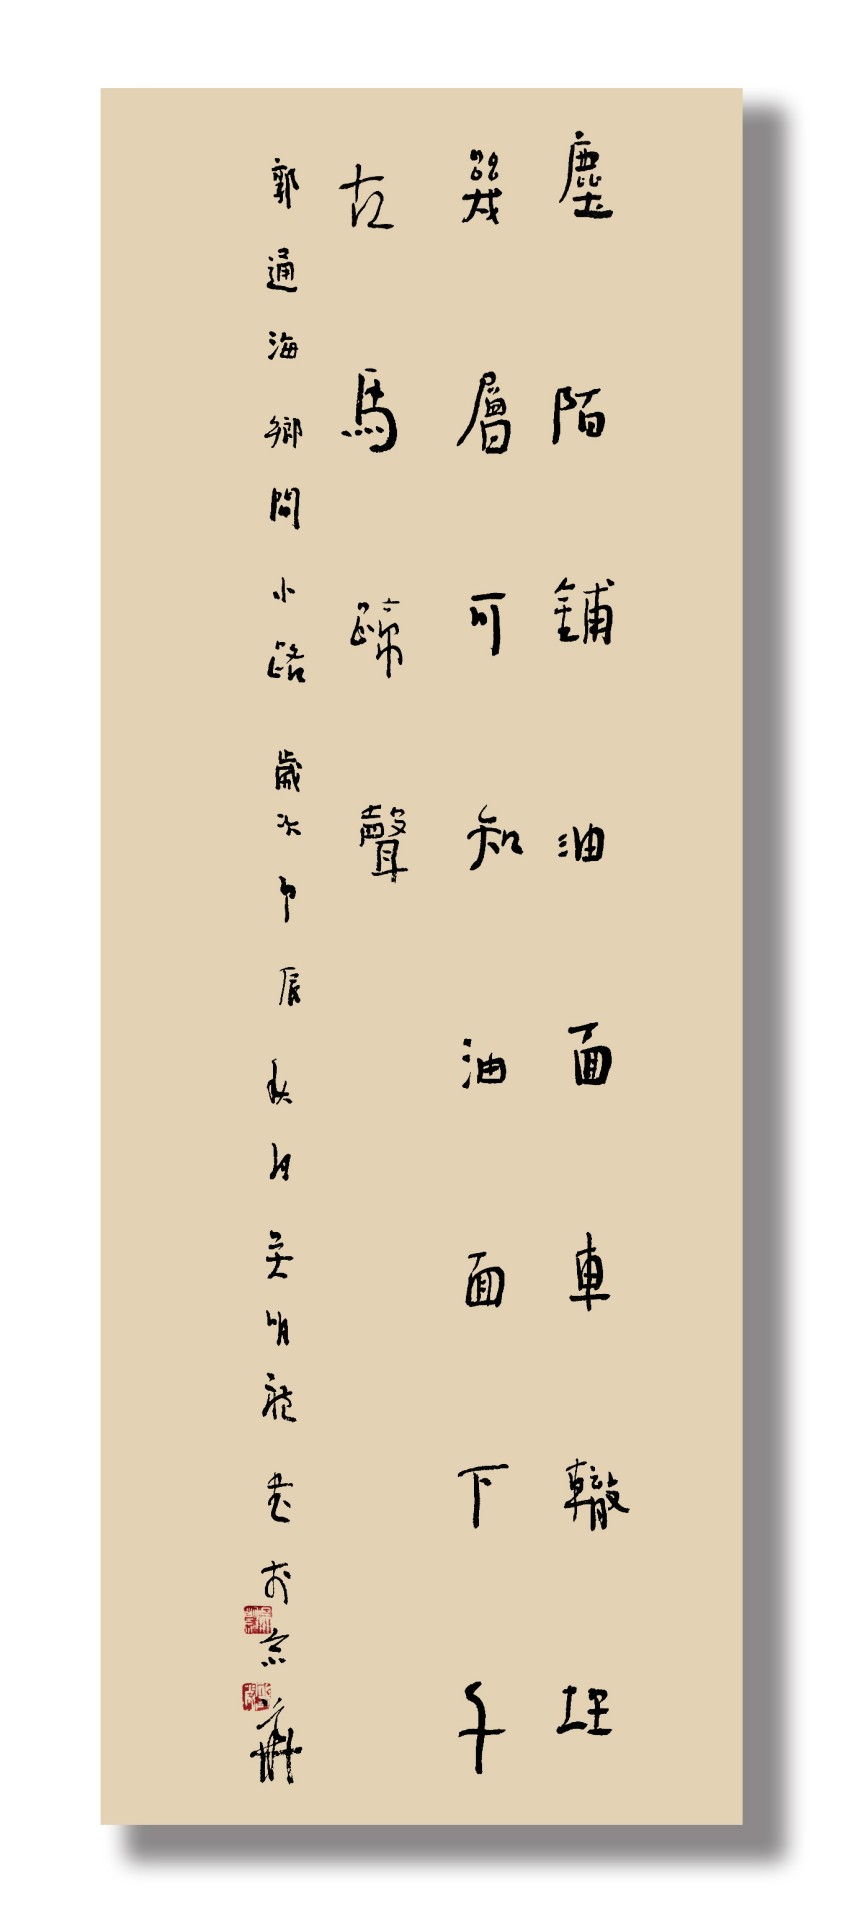 塵陌鋪油面車轍埋
幾層可知油面下千
古馬蹄聲
郭通海鄉間小路歲次甲辰秋月吴明龍書於京華